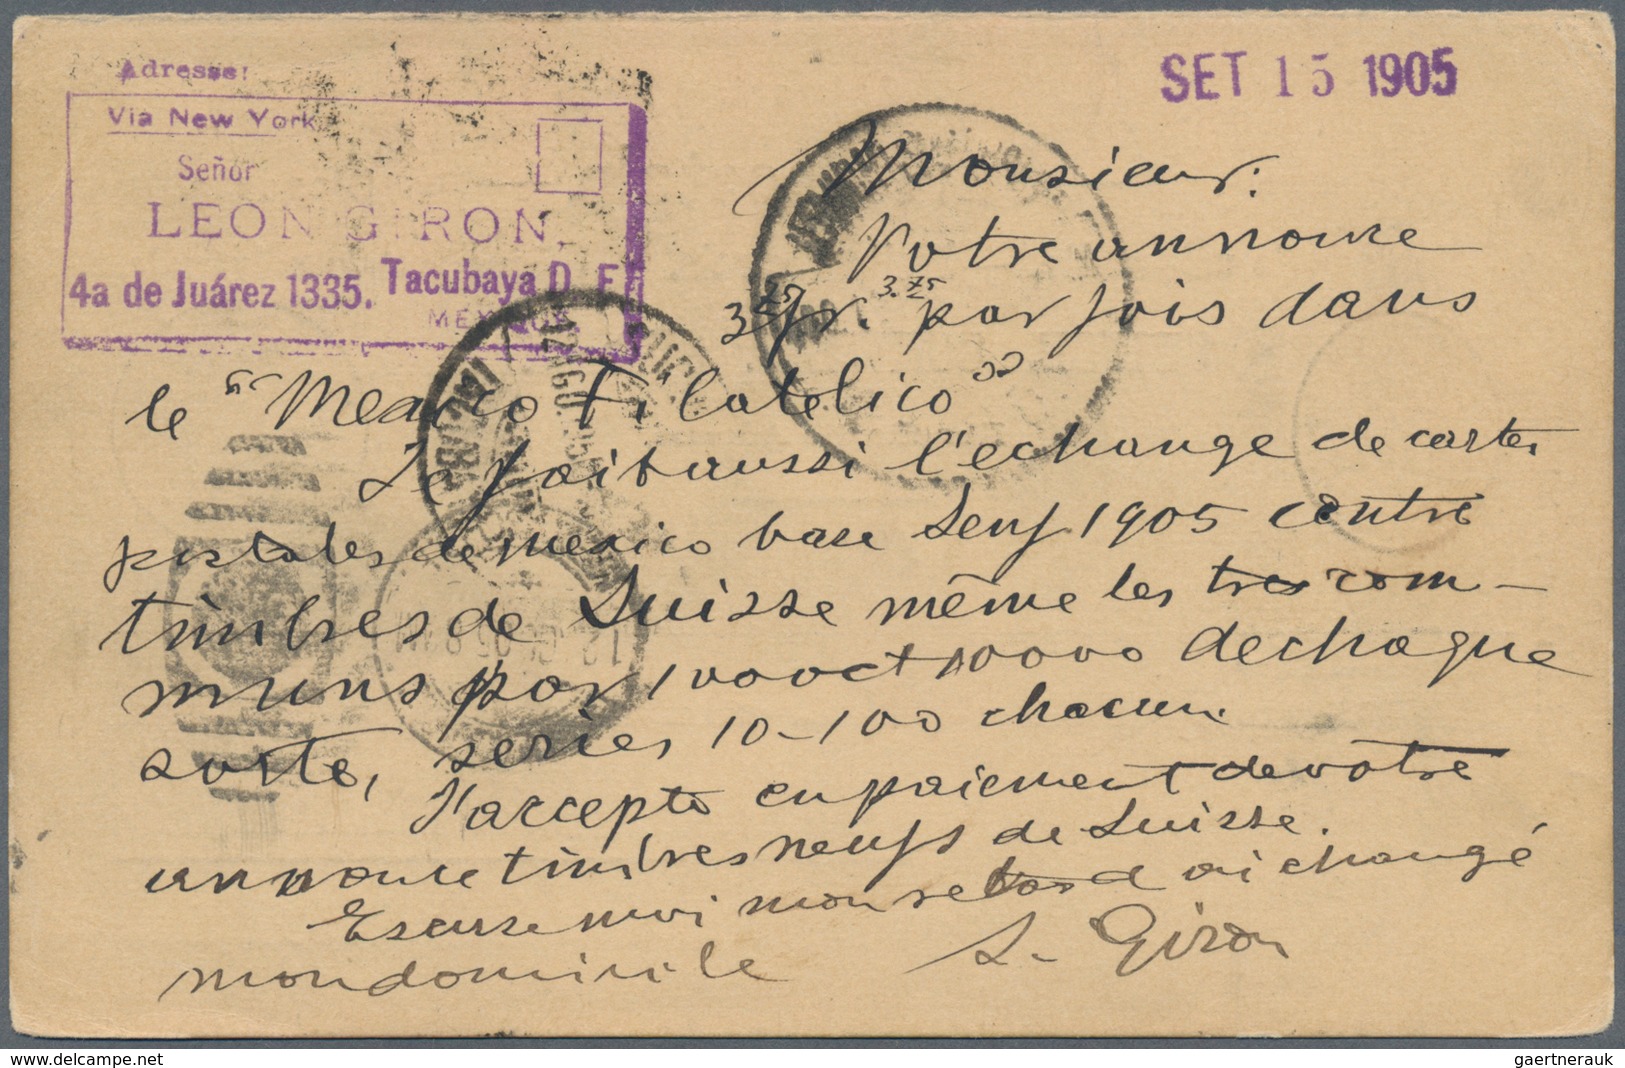 Adresse:
Via New York.
Señor
LEON GIRON,
4a de Juárez 1335. Tacubaya D. F.
MEXIQUE.
SET 15 1905
Monsieur:
Votre annonce
3 25 fr. 3.75 par fois dans
le "Mexico Filatelico"
Je fait aussi l'echange de cartes
postales de mexico base Senf 1905 contre
timbres de Suisse même les tres com-
muns par 1000 et 10000 de chaque
sorte, series 10-100 chacun.
J'accepte en paiement de votre
annonce timbres neufs de Suisse.
Excuse moi mon retard ai changé
mon domicile L. Giron
gaertnerauk@delcampe.net